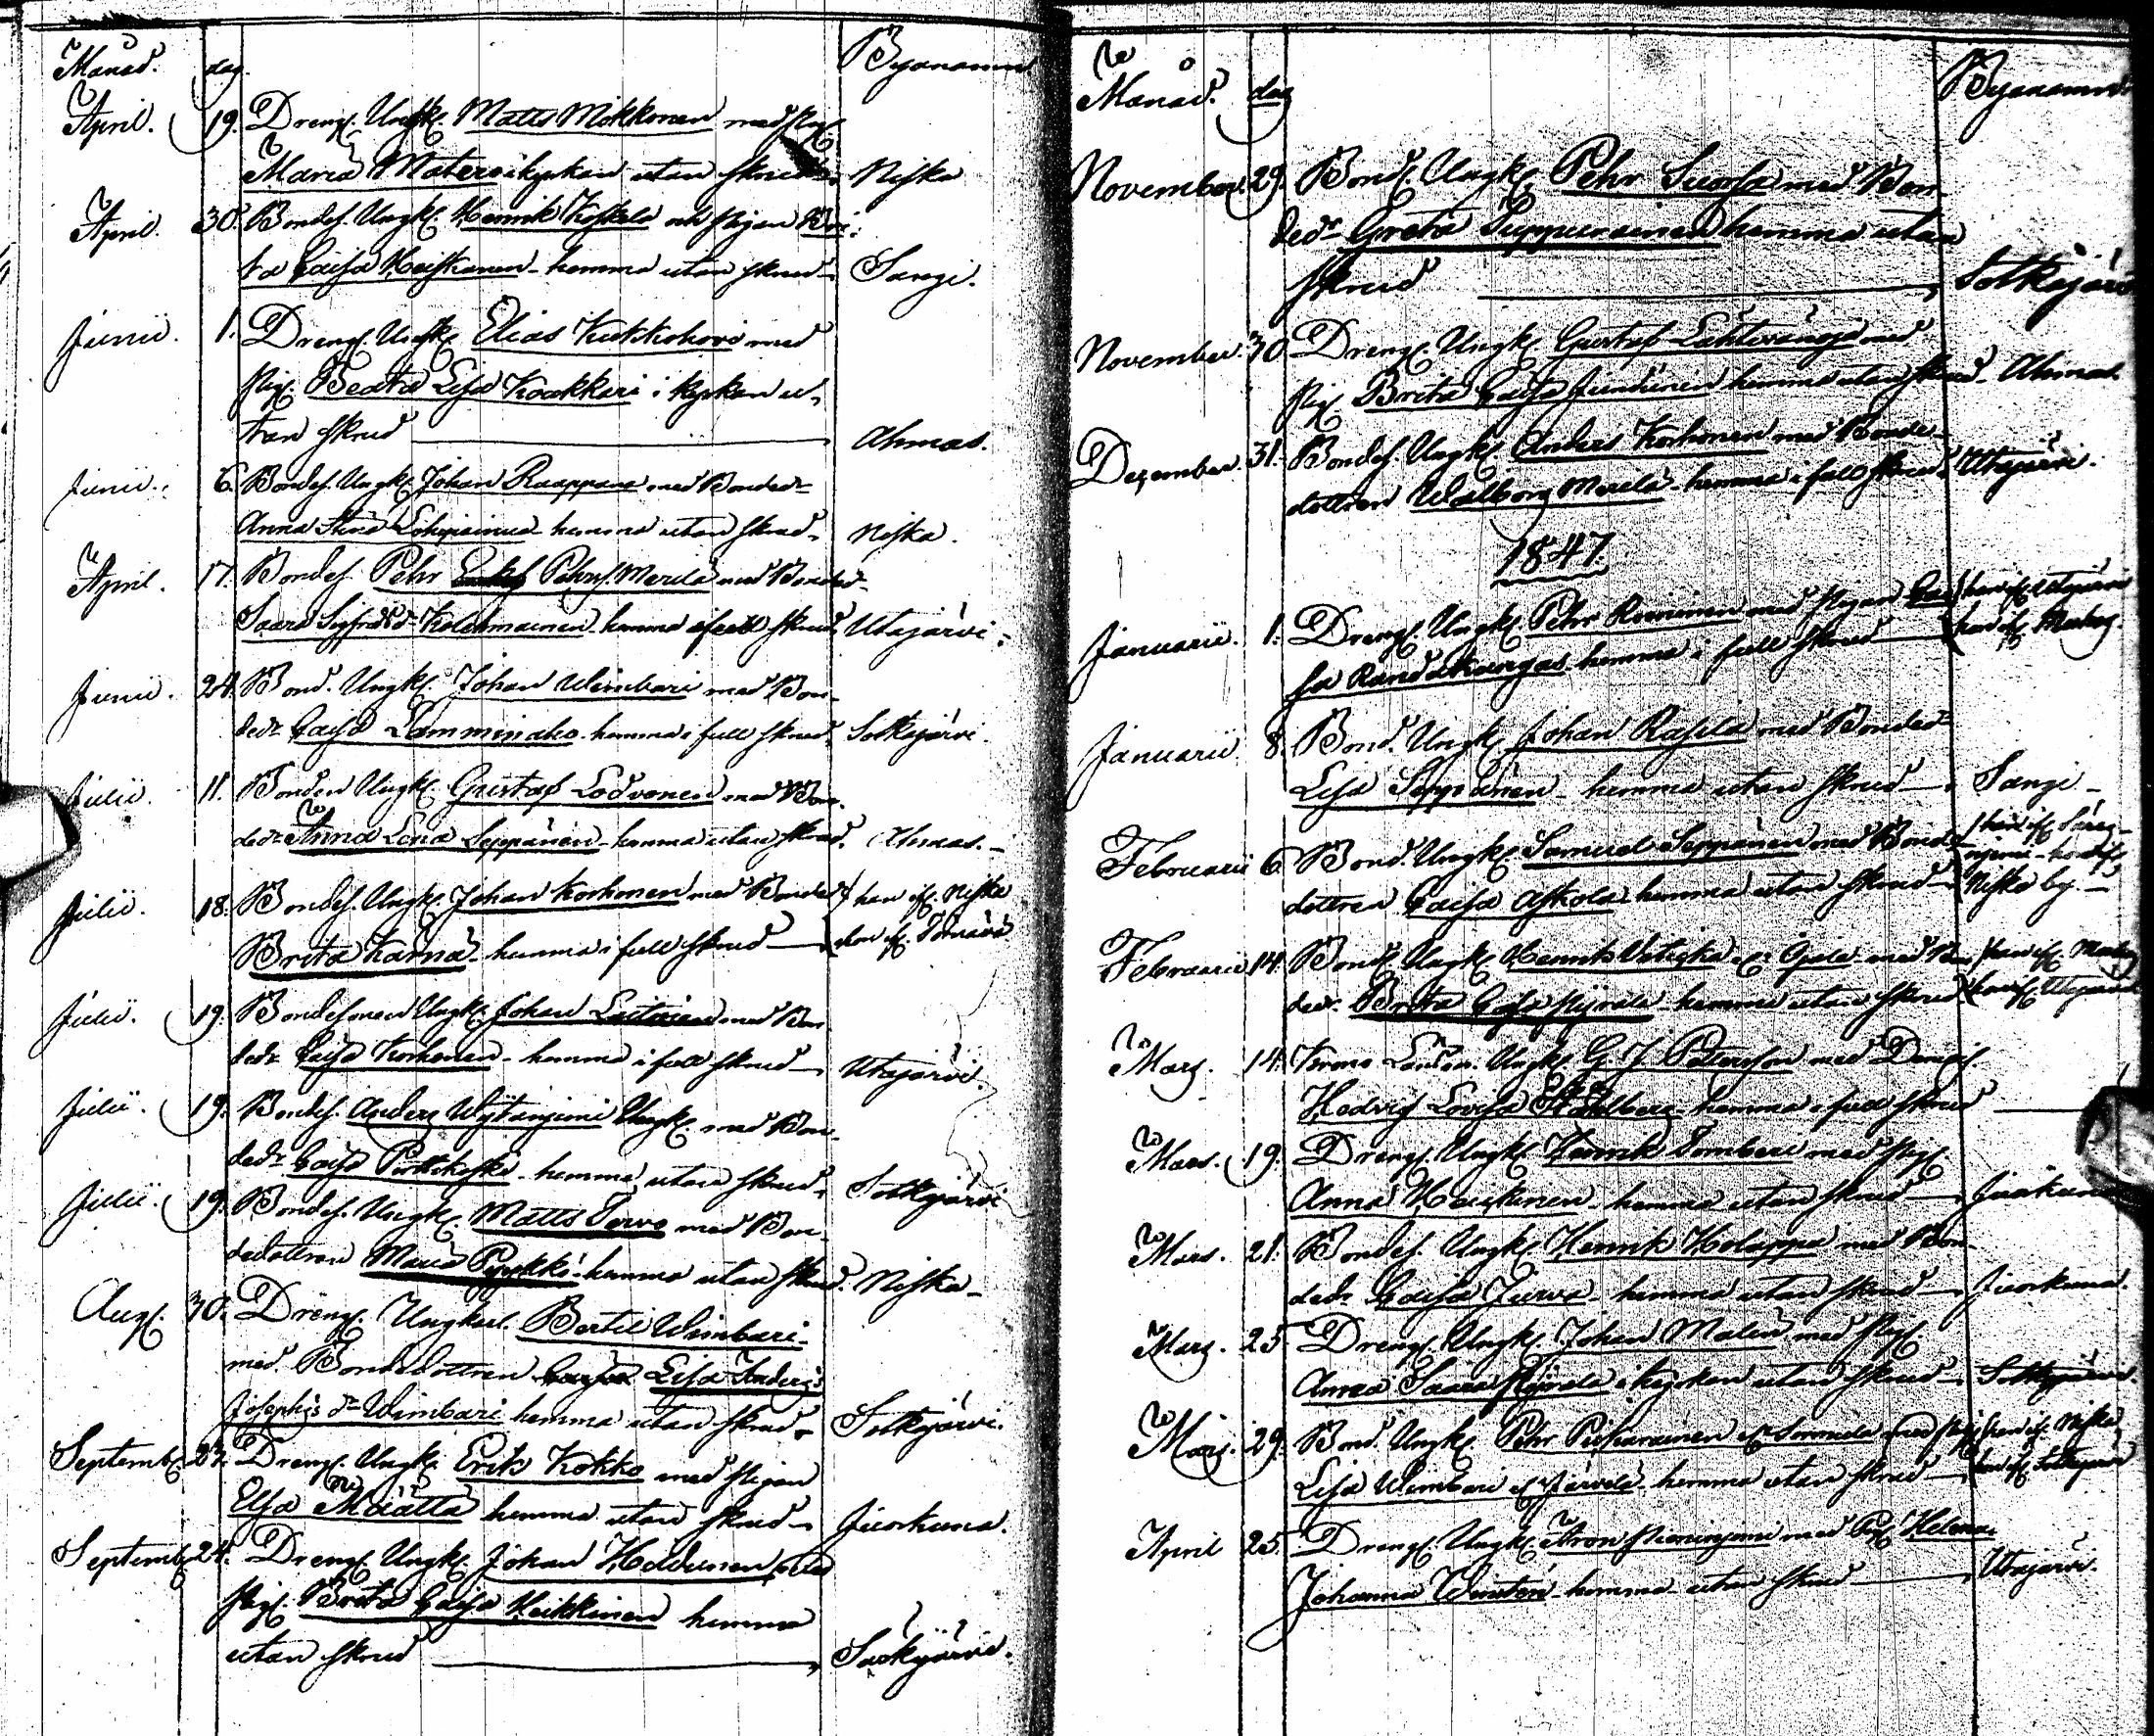 Månad. dag. Byanamn
April. 19. Drengs. Ungk. Matts Mokkonen med pig.
Maria Matero i kyrkan utan skrud Niska
April. 30. Bondes. Ungk. Henrik Koskelo och Pigan Bri-
ta Caisa Heiskanen - hemma utan skrud Sangi.
Junii. 1. Dreng. Ungk. Elias Kukkohovi med
pig. Beata Lisa Kaakkari i kyrkan u-
tan skrud Ahmas.
Junii. 6. Bondes. Ungk. Johan Raappana med Bonded:
Anna Stina hemma utan skrud Niska.
April. 17. Bondes. Pehr Pehrs. Merilä med Bonded-
Saara Sigfridsdr Kolehmainen hemma i full skrud Utajärvi.
Junii. 24. Bond. Ungk. Johan Wimbari med Bon-
dedr Caisa Lamminaho hemma i full skrud Sotkajärvi.
Julii. 11. Bonden Ungk. Gustaf Lodvonen med Bon-
dedr Anna Lena Seppänen hemma utan skrud. Ahmas.
Julii. 18. Bondes. Ungk. Johan Korhonen med Bonded: han if. Niska
Brita Kärnä hemma i full skrud hon if.
Julii. 19. Bondesonen Ungk. Johan Laitinen med Bon
dedr Caisa Korhonen - hemma i full skrud Utajärvi.
Julii. 19. Bondes. Anders Ungk. med Bon-
dedr Caisa Pirttikoski - hemma utan skrud Sotkajärvi
Julii. 19. Bondes. Ungk. Matts Tervo med Bon-
dedottren Maria Pyykkö hemma utan skrud. Niska
Aug. 30. Dreng. Ungkarl. Bertil Wimbari
med Bondedottren Lisa Anders
Josephs dr Wimbari hemma utan skrud Sotkajärvi.
Septemb. 23. Dreng. Ungk. Erik Kokko med pigan
Elsa Määttä hemma utan skrud Juorkuna.
Septemb. 24. Dreng. Ungk. Johan med
pig. Brita Caisa Heikkinen hemma
utan skrud
Månad. dag Byanamn
November. 29. Bond. Ungk. Pehr Suorsa med Bon-
dedr Greta hemma utan
skrud Sotkajärvi
November. 30 Dreng. Ungk. Gustaf med
pig. Brita Caisa hemma utan skrud Ahmas.
Dezember. 31. Bondes. Ungk. Anders Korhonen med Bonde-
dottren Walborg Merilä hemma i full skrud Utajärvi.
1847.
Januarii. 1. Dreng. Ungk. Pehr Roininen med pigan Cai han if. Utajärvi
sa hemma i full skrud hon if. Muhos.
Januarii. 8. Bond. Ungk. Johan Rasila med Bonded:
Lisa Seppänen - hemma utan skrud Sangi
Februarii 6 Bond. Ungk. Samuel Seppänen med Bonde-
dottren Caisa Askola hemma utan skrud Niska by.
Februarii 14. Bond. Ungk. Henrik med Bon han if. Muhos
dedr. Brita Caisa hemma utan skrud hon if. Utajärvi
Mars. 14. Ungk. G. J. Petersson med Demois.
Hedvig Lovisa Ståhlberg hemma i full skrud
Mars. 19. Dreng. Ungk. Henrik med pig.
Anna hemma utan skrud Juorkuna
Mars. 21. Bondes. Ungk. Henrik Holappa med Bon
dedr Caisa Jurva - hemma utan skrud Juorkuna.
Mars. 25 Dreng. Ungk. Johan Malin med pig.
Anna Saara i kyrkan utan skrud Sotkajärvi
Mars. 29. Bond. Ungk. Pehr med pig. han if. Niska
Lisa Wimbari hemma utan skrud hon if. Sotkajärvi
April 25. Dreng. Ungk. Aron med Pig. Helena
Johanna hemma utan skrud Utajärvi.